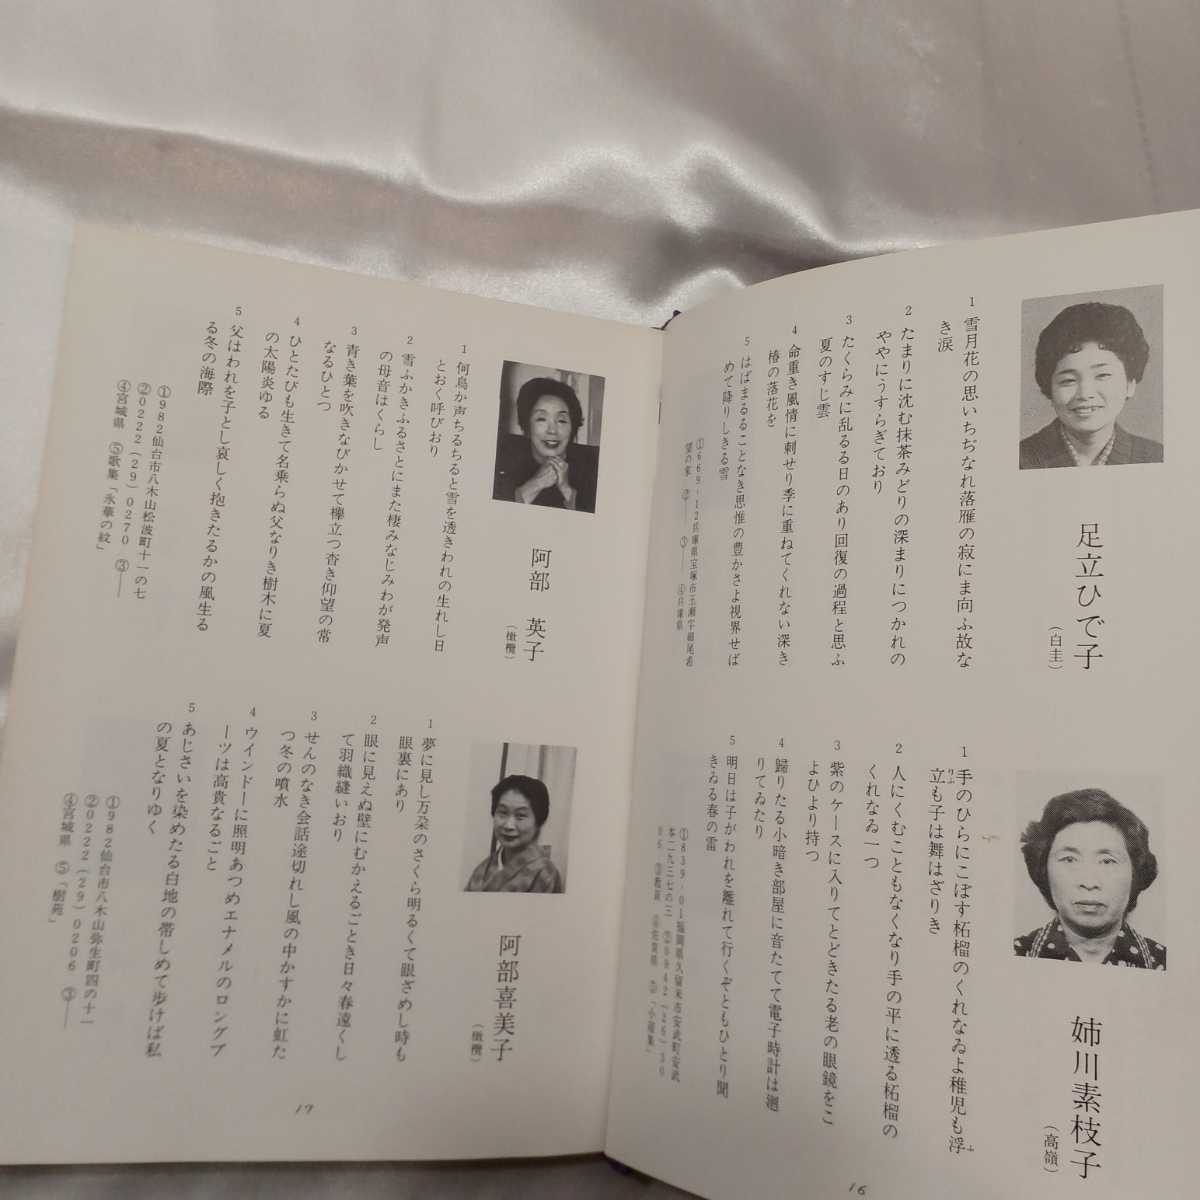 足立ひで子
(白圭)
1 雪月花の思いちぢなれ落雁の寂にま向ふ故な
き涙
2 たまりに沈む抹茶みどりの深まりにつかれの
ややにうすらぎており
3 たくらみに乱るる日のあり回復の過程と思ふ
夏のすじ雲
4 命重き風情に刺せり季に重ねてくれない深き
椿の落花を
5 はばまるることなき思惟の豊かさよ視界せば
めて降りしきる雪
①669-12兵庫県宝塚市玉瀬字
②── ③── ④兵庫県
姉川素枝子
(高嶺)
1 手のひらにこぼす柘榴のくれなゐよ稚児も浮
立も子は舞はざりき
2 人にくむこともなくなり手の平に透る柘榴の
くれなゐ一つ
3 紫のケースに入りてとどきたる老の眼鏡をこ
よひより持つ
4 歸りたる小暗き部屋に音たてて電子時計は廻
りてゐたり
5 明日は子がわれを離れて行くぞともひとり聞
きゐる春の雷
①839-01福岡県久留米市安武町安武
本二九三七の三 ②0942(26)30
④佐賀県
16
阿部 英子
(橄欖)
1 何鳥か声ちるちると雪を透きわれの生れし日
とおく呼びおり
2 雪ふかきふるさとにまた棲みなじみわが発声
の母音はくらし
3 青き葉を吹きなびかせて欅立つ杳き仰望の常
なるひとつ
4 ひとたびも生きて名乗らぬ父なりき樹木に夏
の太陽炎ゆる
5 父はわれを子とし哀しく抱きたるかの風生る
る冬の海際
①982仙台市八木山松波町十一の七
②0222(29)0270 ③──
④宮城県 ⑤歌集「氷華の紋」
阿部喜美子
(橄欖)
1 夢に見し万朶のさくら明るくて眼ざめし時も
眼裏にあり
2 眼に見えぬ壁にむかえるごとき日々春遠くし
て羽織縫いおり
3 せんのなき会話途切れし風の中かすかに虹た
つ冬の噴水
4 ウインドーに照明あつめエナメルのロングブ
ーツは高貴なるごと
5 あじさいを染めたる白地の帯しめて歩けば私
の夏となりゆく
①982仙台市八木山弥生町四の十一
②0222(29)0206 ③──
④宮城県 ⑤「樹苑」
17